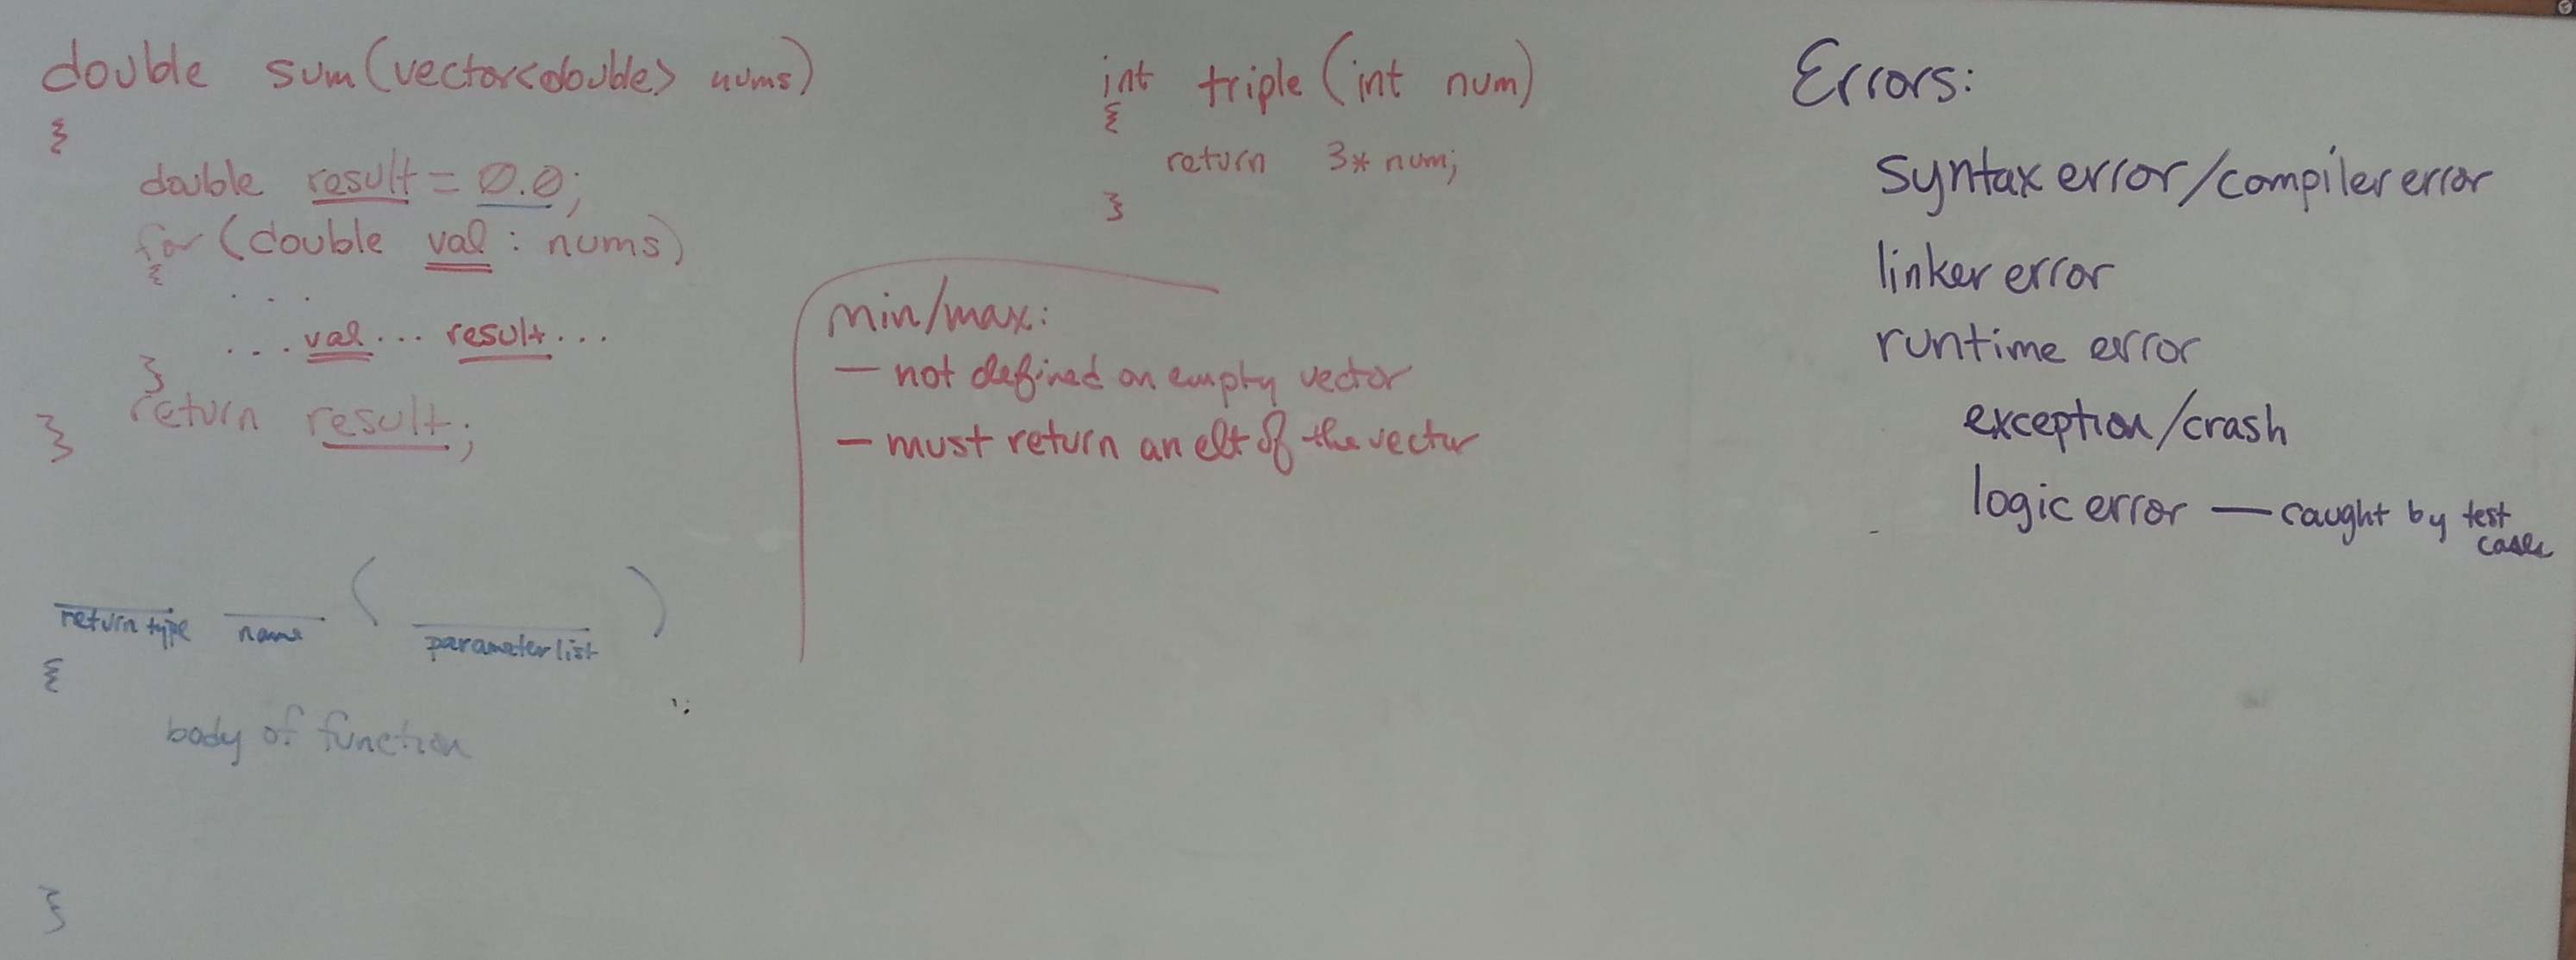 double sum(vector<double> nums)
{
double result = 0.0;
for (double val : nums)
{
. . .
... val ... result ...
}
return result;
}
int triple (int num)
{
return 3* num;
}
min/max:
— not defined on empty vector
— must return an elt of the vector
Errors:
syntax error/compiler error
linker error
runtime error
exception/crash
logic error — caught by test
cases
return type name ( parameter list )
{
body of function
}